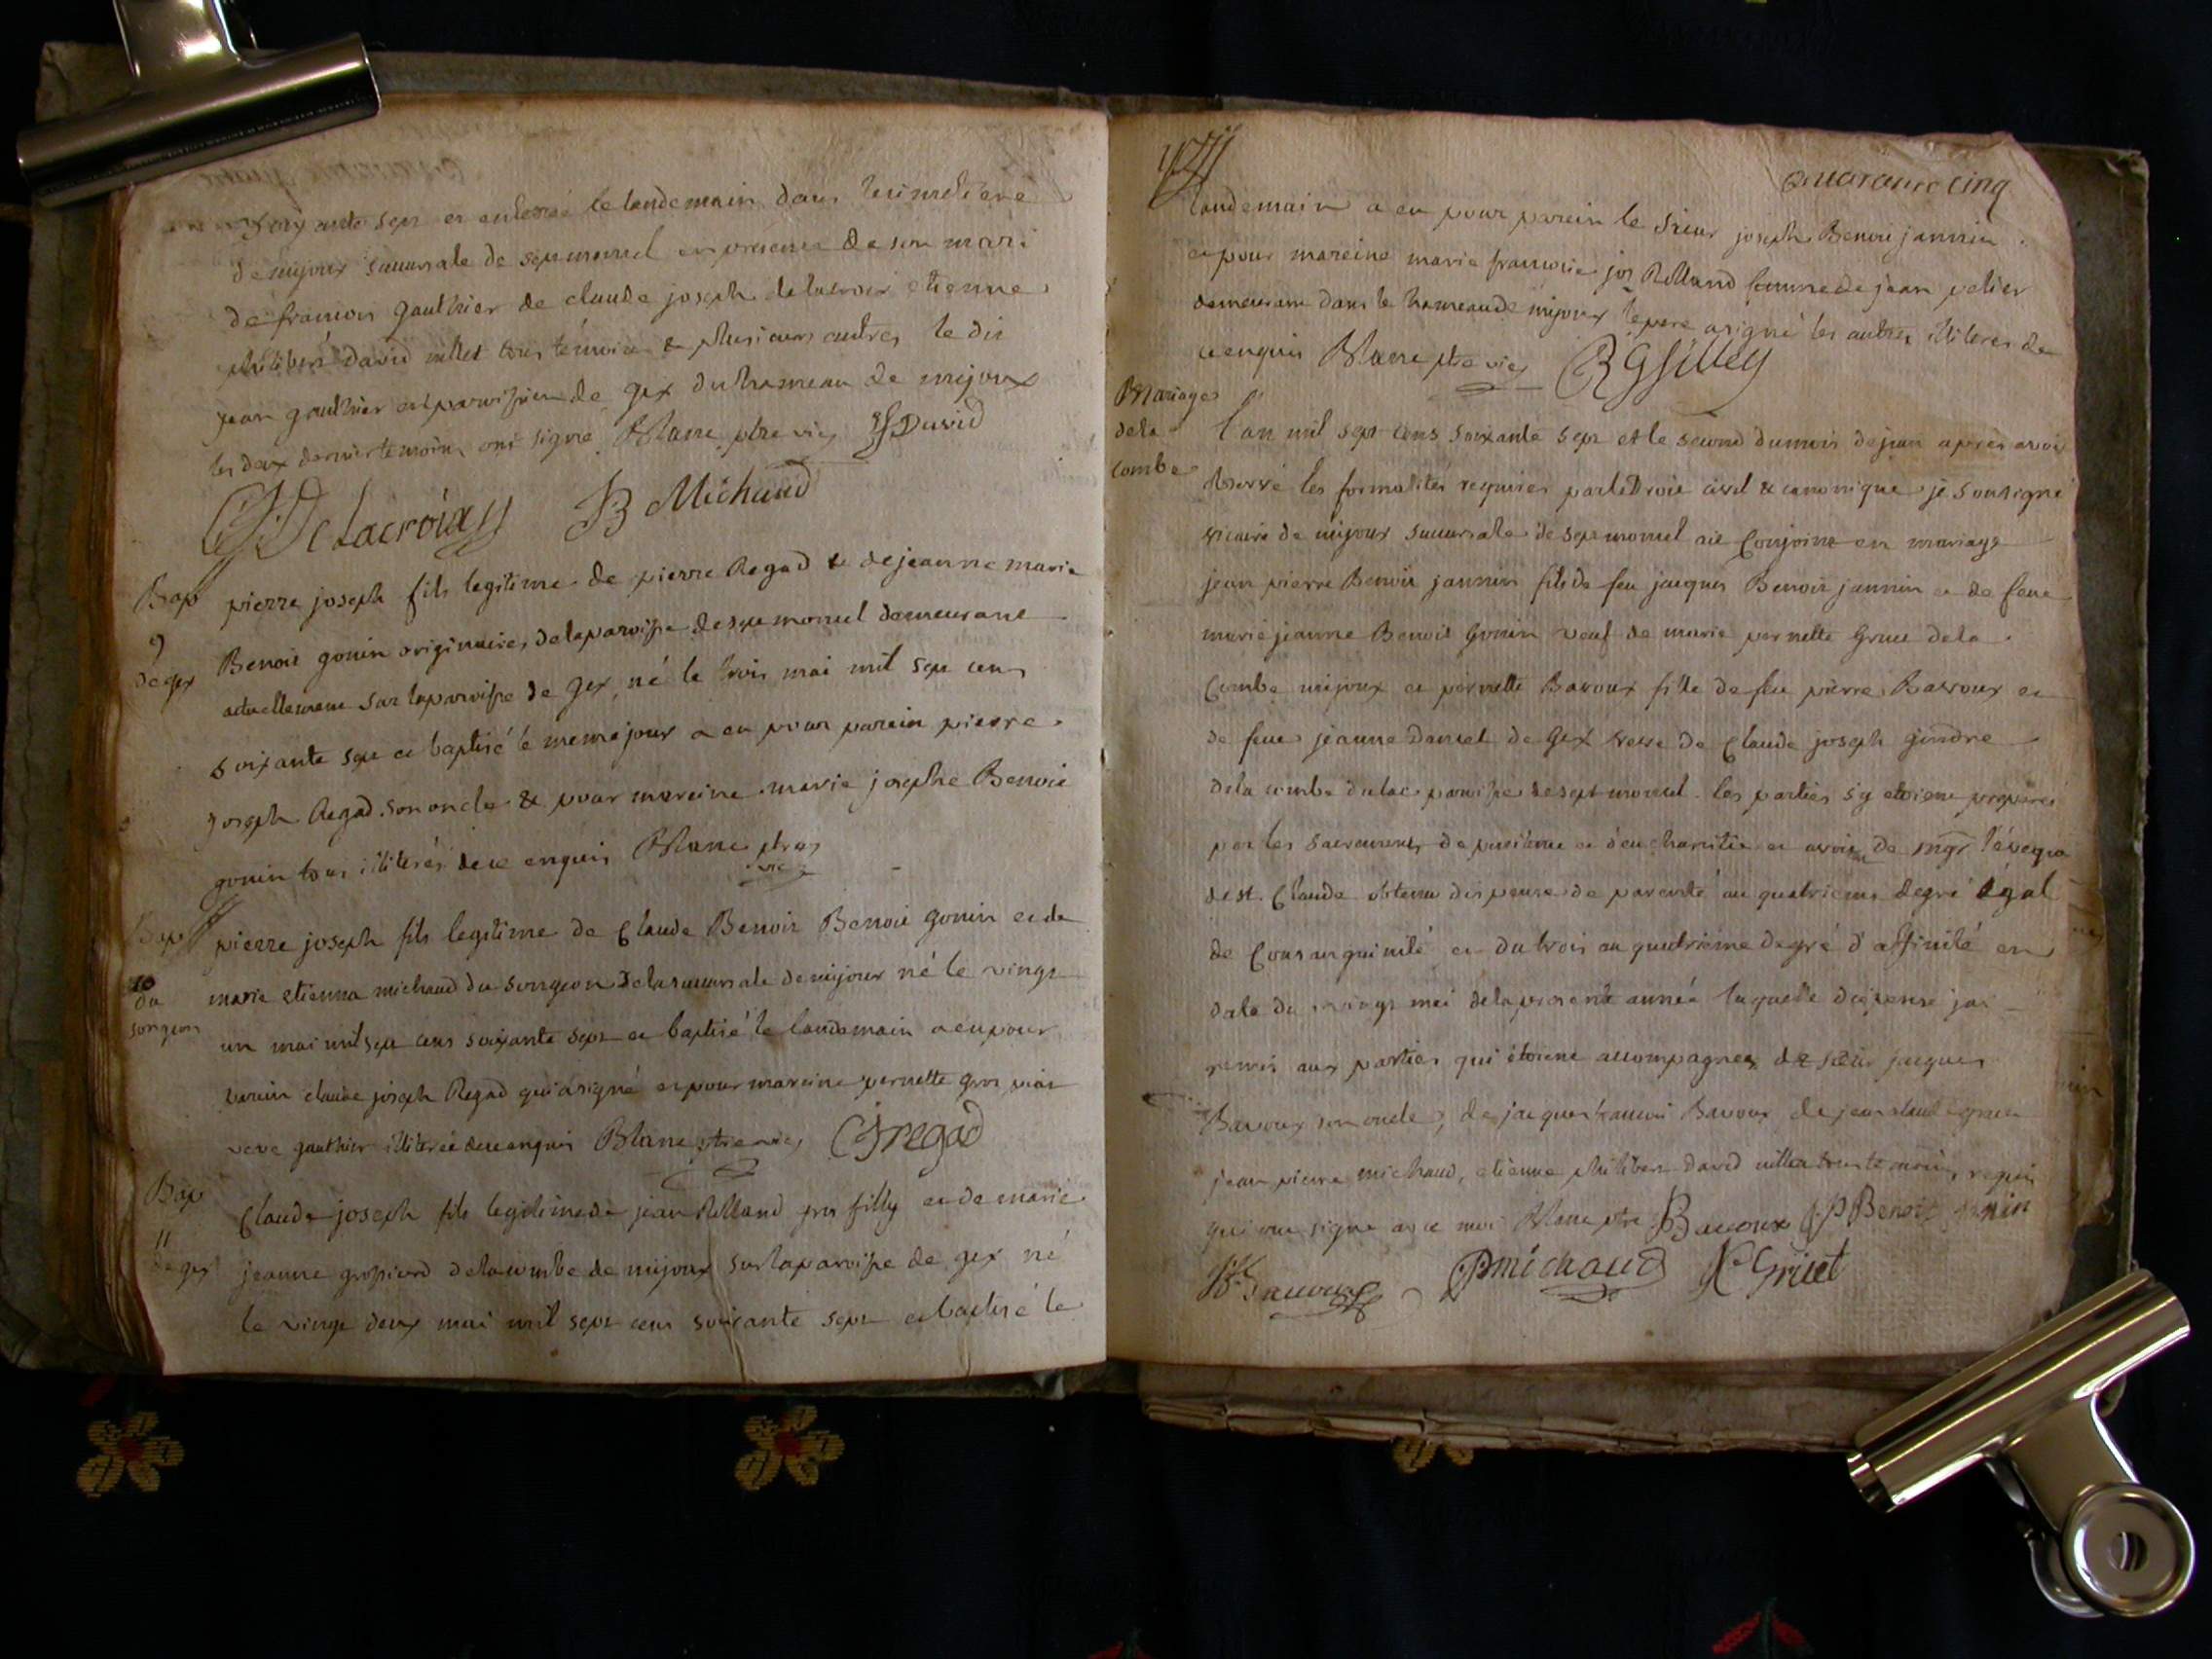 soixante sept et enterré le landemain dans le cimetiere
de mijoux succursale de septmoncel en presence de son mari
de francois Gauthier de claude joseph delacroix etienne
philibert david millet tous témoins & plusieurs autres le dit
jean gauthier est paroissien de Gex du hameau de mijoux
les deux dernier temoins ont signé Blanc ptre vic David
Delacroix JB Michaud
Bap
9
de gex
pierre joseph fils legitime de pierre Regad & de jeanne marie
Benoit gonin originaires de la paroisse de sept moncel demeurant
actuellement sur la paroisse de Gex, né le trois mai mil sept cens
soixante sept et baptisé le meme jour a eu pour parein pierre
joseph Regad son oncle & pour mareine marie josephe Benoit
gonin tous illiterés de ce enquis Blanc ptre
vic
Bap
10
du
songeon
pierre joseph fils legitime de Claude Benoit Benoit gonin et de
marie etienna michaud du songeon de la succursale de mijoux né le vingt
un mai mil sept cens soixante sept et baptisé le landemain a eu pour
parein claude joseph Regad qui a signé et pour mareine pernette gros
veve gauthier illiterée de ce enquis Blanc ptre vic CJregad
Bap
11
de gex
Claude joseph fils legitime de jean Rolland gros filly et de marie
jeanne grospiard de la combe de mijoux sur la paroisse de gex né
le vingt deux mai mil sept cens soixante sept et baptisé le
quarante cinq
landemain a eu pour parein le sieur joseph Benoit jannin
et pour mareine marie francoise Rolland femme de jean pelier
demeurant dans le hameau de mijoux le pere a signé les autres illiteres de
ce enquis Blanc ptre vic
Mariage
de la
combe
L'an mil sept cens soixante sept et le second du mois de juin apres avoir
observé les formalités requises par le Droit civil & canonique je soussigné
vicaire de mijoux succursale de septmoncel ai Conjoint en mariage
jean pierre Benoit jannin fils de feu jacques Benoit jannin et de feue
marie jeanne Benoit Gonin veuf de marie pernette Gruet de la
Combe mijoux et pernette Bavoux fille de feu pierre Bavoux et
de feue jeanne Daniel de Gex veve de Claude joseph gindre
de la combe du lac paroisse de sept moncel. les parties s'y etoient preparées
par les sacremens de penitence et d'eucharistie et avoient de mgr l'éveque
de st. Claude obtenu dispense de parenté au quatrieme degré égal
de Consanguinité et du trois au quatrieme degré d'affinité en
date du vingt mai de la presente année laquelle dispense jai
remis aux parties qui étoient accompagnées de sieur jacques
Bavoux son oncle, de jacques francois Bavoux de jean claude gruet
jean pierre michaud, etienne philibert david millet tous temoins requis
qui ont signé avec moi Blanc ptre Bavoux JP Benoit janin
Bavoux JPmichaud JC Gruet